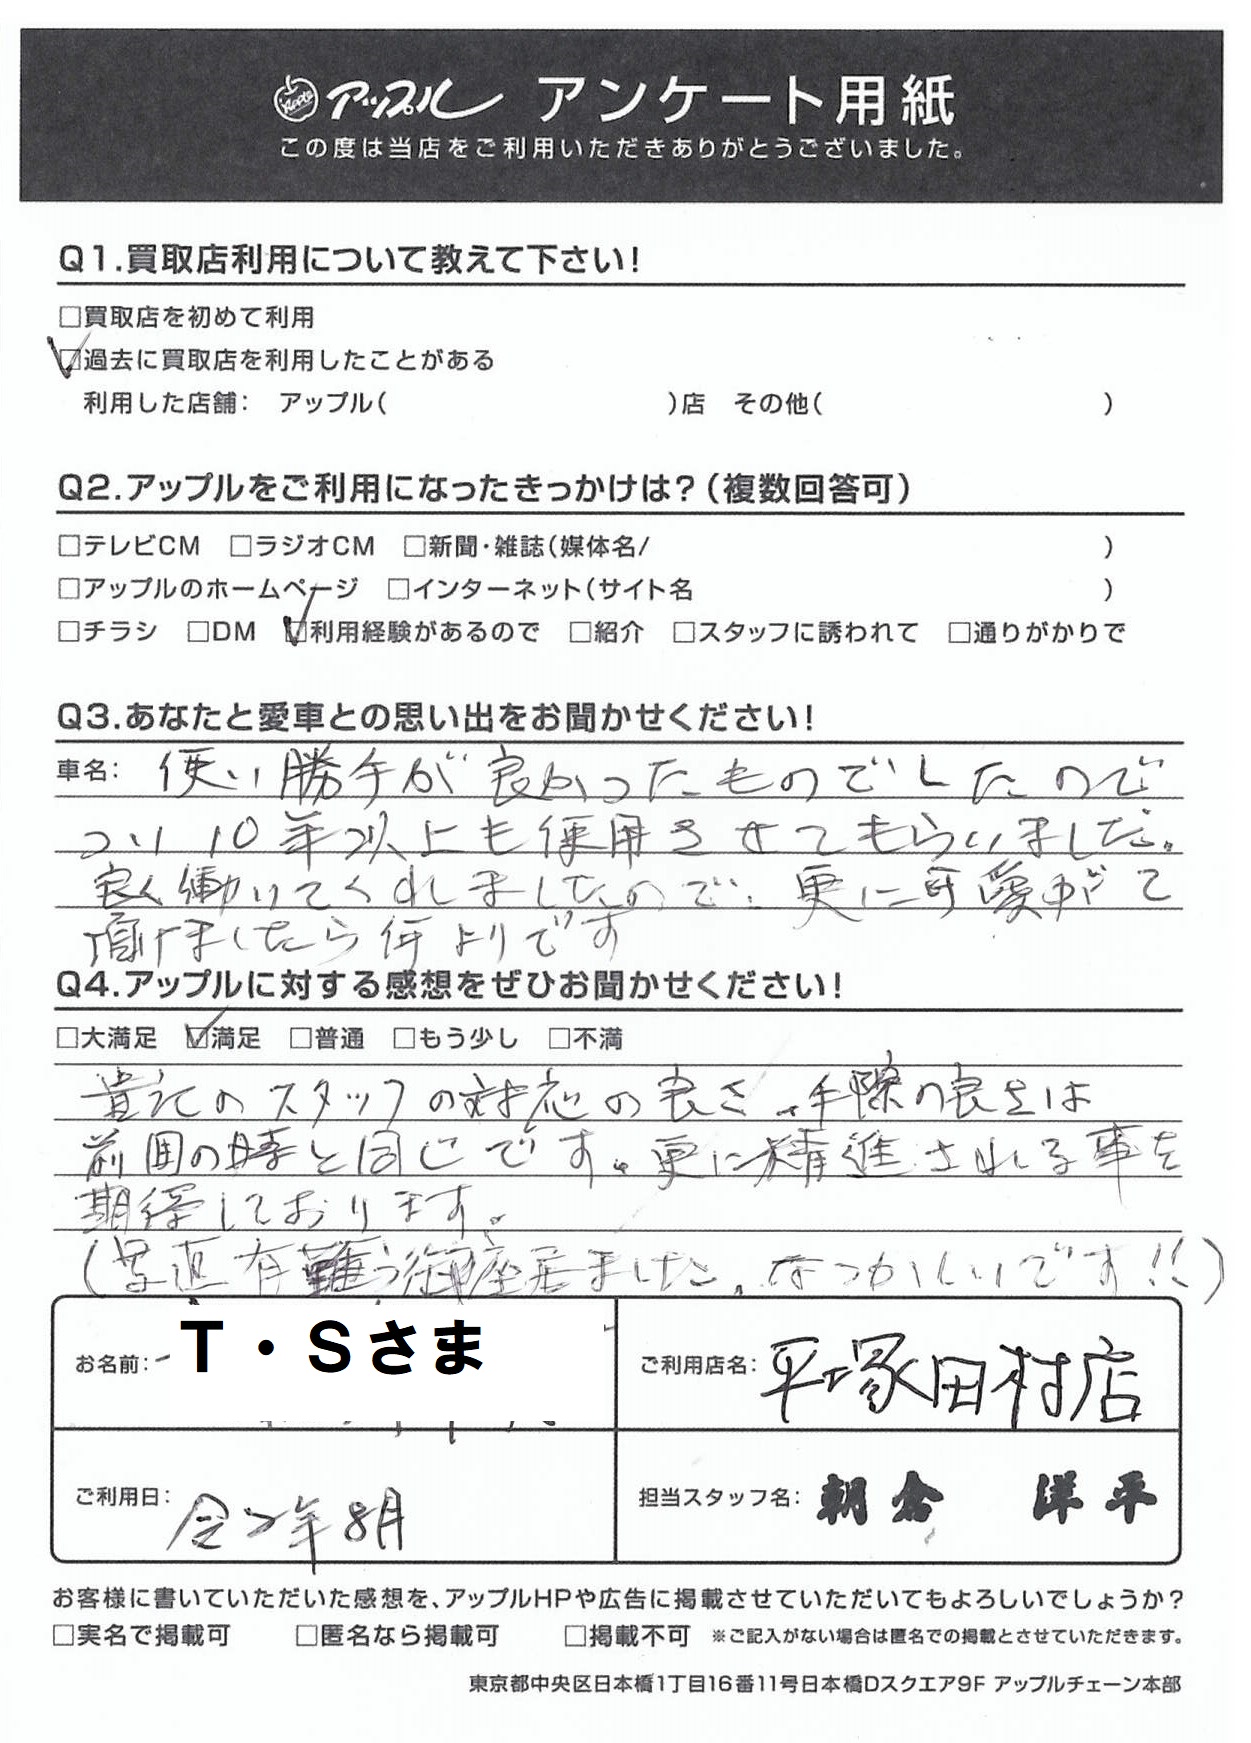 Apple アップル アンケート用紙
この度は当店をご利用いただきありがとうございました。
Q1.買取店利用について教えて下さい!
□買取店を初めて利用
☑過去に買取店を利用したことがある
利用した店舗: アップル( )店 その他( )
Q2.アップルをご利用になったきっかけは?(複数回答可)
□テレビCM □ラジオCM □新聞・雑誌(媒体名/ )
□アップルのホームページ □インターネット(サイト名 )
□チラシ □DM ☑利用経験があるので □紹介 □スタッフに誘われて □通りがかりで
Q3.あなたと愛車との思い出をお聞かせください!
車名: 使い勝手が良かったものでしたので
つい10年以上も使用させてもらいました。
良く働いてくれましたので、更に可愛がて
頂けましたら何よりです
Q4.アップルに対する感想をぜひお聞かせください!
□大満足 ☑満足 □普通 □もう少し □不満
貴社のスタッフの対応の良さ、手際の良さは
前回の時と同じです。更に精進される事を
期待しております。
(写真有難う御座居ました。なつかしいです!!)
お名前: T・Sさま
ご利用店名: 平塚田村店
ご利用日: 令2年8月
担当スタッフ名: 朝倉 洋平
お客様に書いていただいた感想を、アップルHPや広告に掲載させていただいてもよろしいでしょうか?
□実名で掲載可 □匿名なら掲載可 □掲載不可 ※ご記入がない場合は匿名での掲載とさせていただきます。
東京都中央区日本橋1丁目16番11号日本橋Dスクエア9F アップルチェーン本部